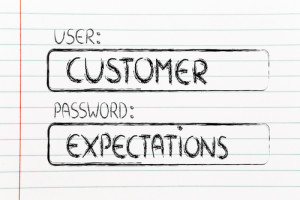 USER:
CUSTOMER
PASSWORD:
EXPECTATIONS